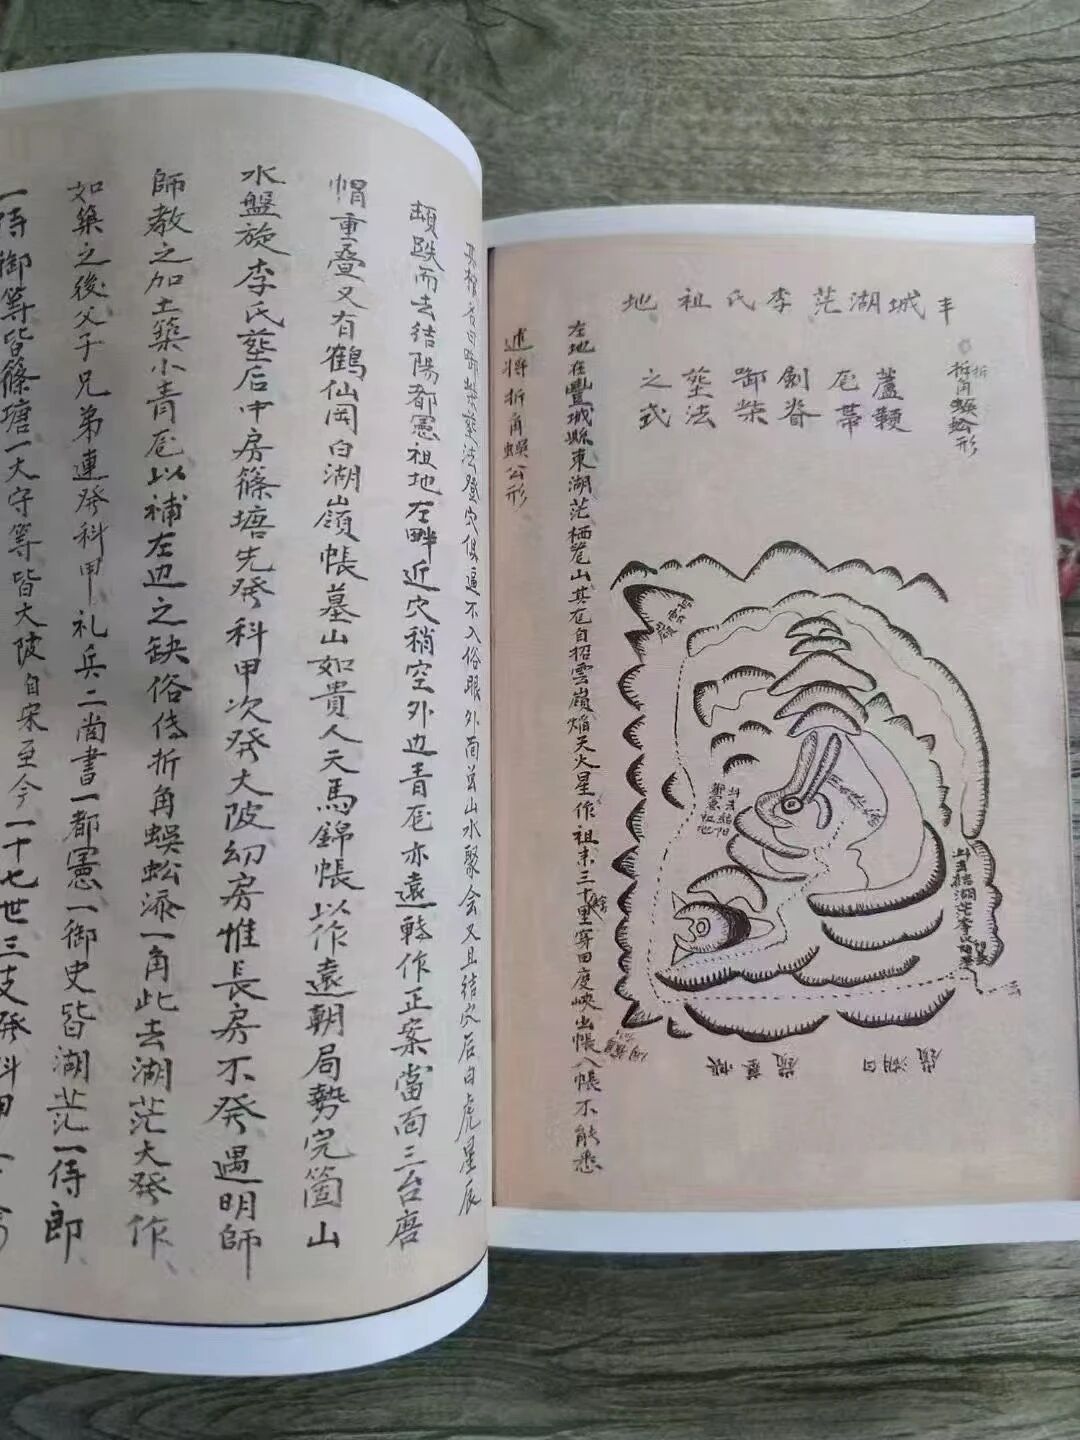 丰城湖茫李氏祖地
折角蜈蚣形
蘆鞭
厄蒂
劍脊
御柴
塟法
之式
左地在豐城縣東湖茫栖山其厄自招雲嶺焰天火星作祖未三十里穿田度峽出帳入帳不能悉
述將折角蜈公形
白湖嶺
帳墓嶺
御柴塟法登穴俱逼不入俗眼外面羣山水聚会又且結穴后白虎星辰
頓跌而去結陽都憲祖地左畔近穴稍空外边青厄亦遠轉作正案當面三台唐
帽重叠又有鶴仙岡白湖嶺帳墓山如貴人天馬錦帳以作遠朝局勢完箇山
水盤旋李氏塟后中房篠塘先癸科甲次癸大陂幼房惟長房不癸遇明師
師教之加土築小青厄以補左边之缺俗傳折角蜈蚣添一角此去湖茫大癸作
如築之後父子兄弟連癸科甲礼兵二尚書一都憲一御史皆湖茫一侍郎
一侍御等皆篠塘一大守等皆大陂自宋至今一十七世三支癸科甲